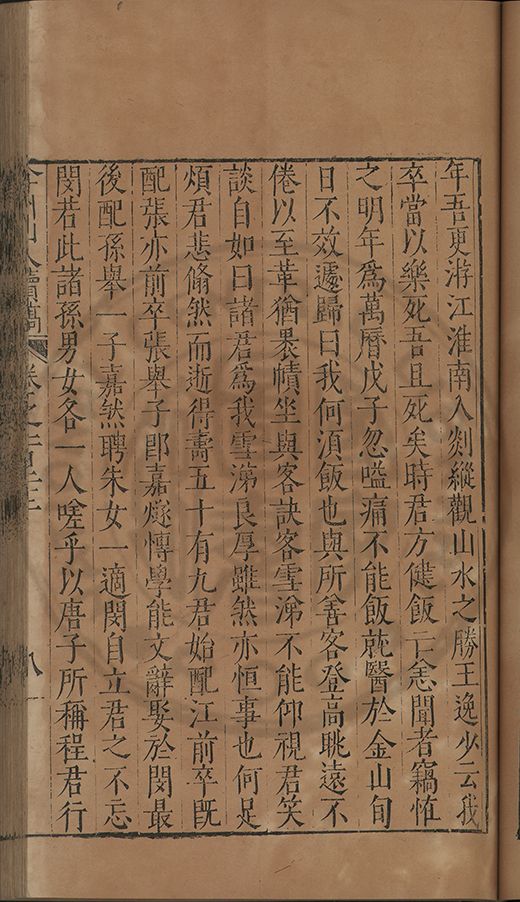 年吾更游江淮南入剡縱觀山水之勝王逸少云我
卒當以樂死吾且死矣時君方健飯亡恙聞者竊恠
之明年爲萬曆戊子忽嗌痛不能飯就醫於金山旬
日不效遽歸曰我何湏飯也與所善客登高眺遠不
倦以至革猶褁幘坐與客訣客雪涕不能仰視君笑
談自如曰諸君爲我雪涕良厚雖然亦恒事也何足
煩君悲翛然而逝得壽五十有九君始配江前卒旣
配張亦前卒張舉子卽嘉燧博學能文辭娶於閔最
後配孫舉一子嘉然聘朱女一適閔自立君之不忘
閔若此諸孫男女各一人嗟乎以唐子所稱程君行
弇州山人續稿 卷之一百 八